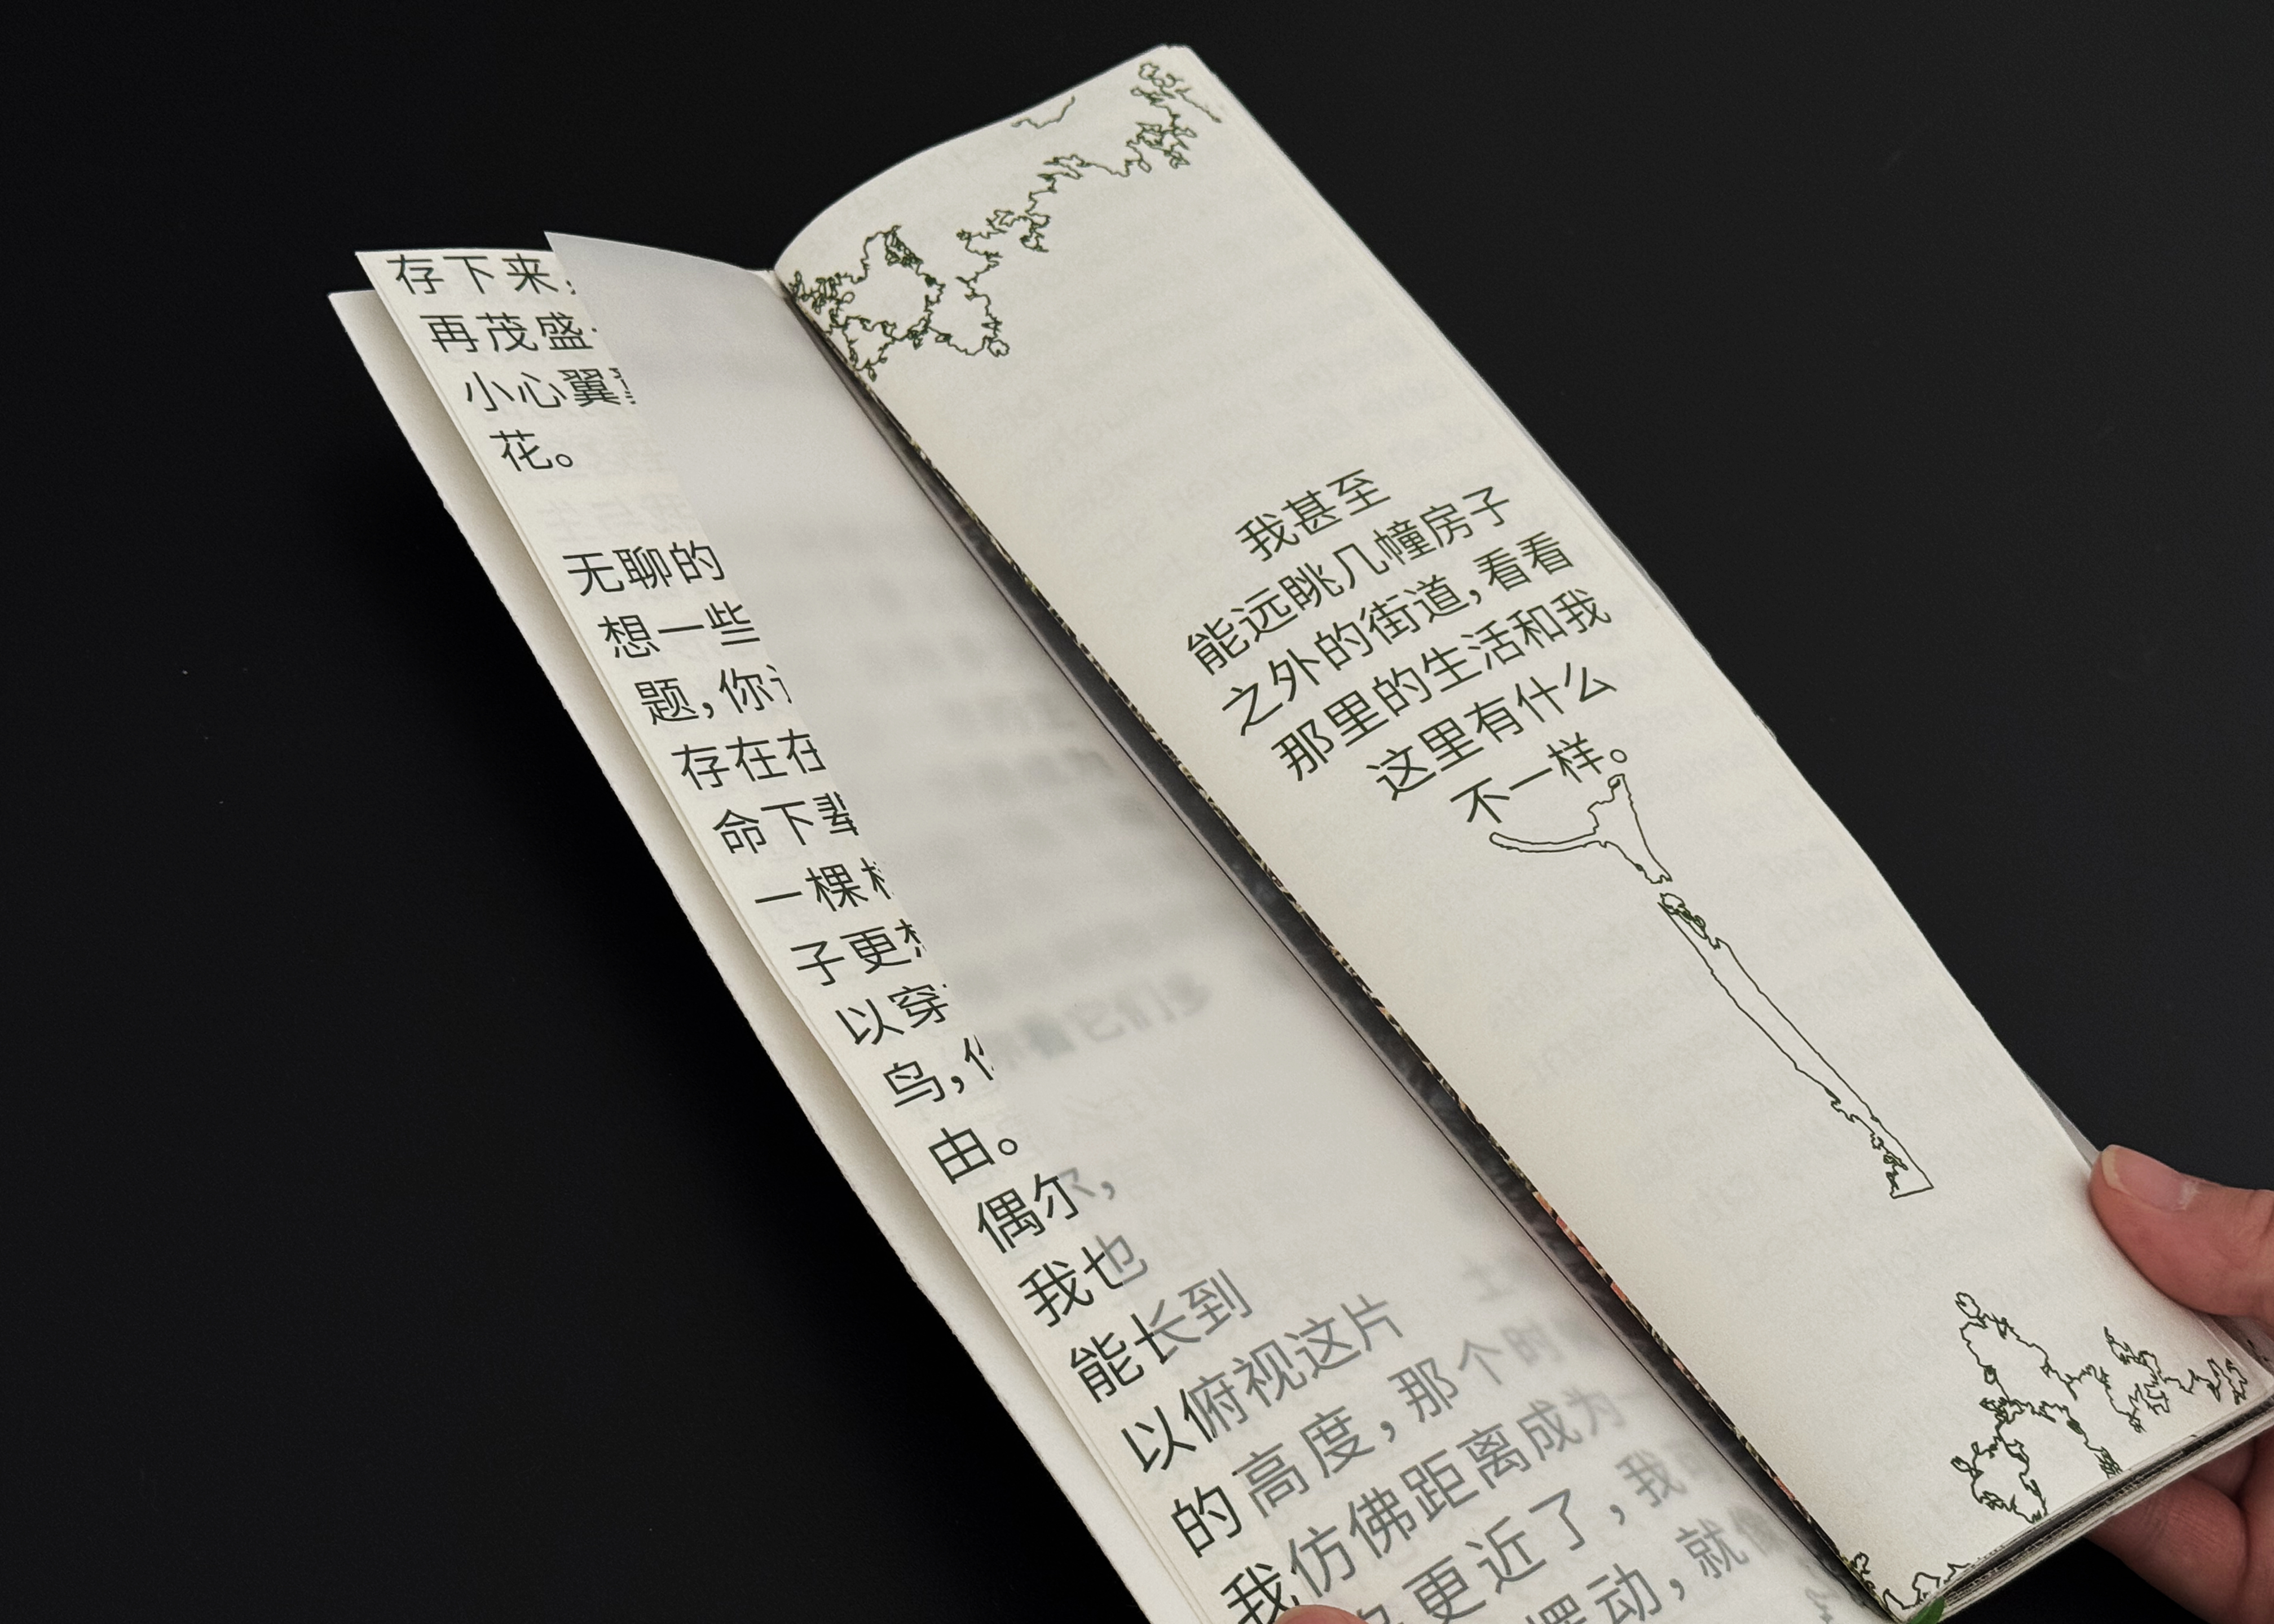 存下来,
再茂盛
小心翼
花。
无聊的
想一些
题,你
存在在
命下辈
一棵
子更
以穿
鸟,
由。
偶尔,
我也
能长到
以俯视这片
的高度,那个时
我仿佛距离成为一
更近了,我
摆动,就像
我甚至
能远眺几幢房子
之外的街道,看看
那里的生活和我
这里有什么
不一样。